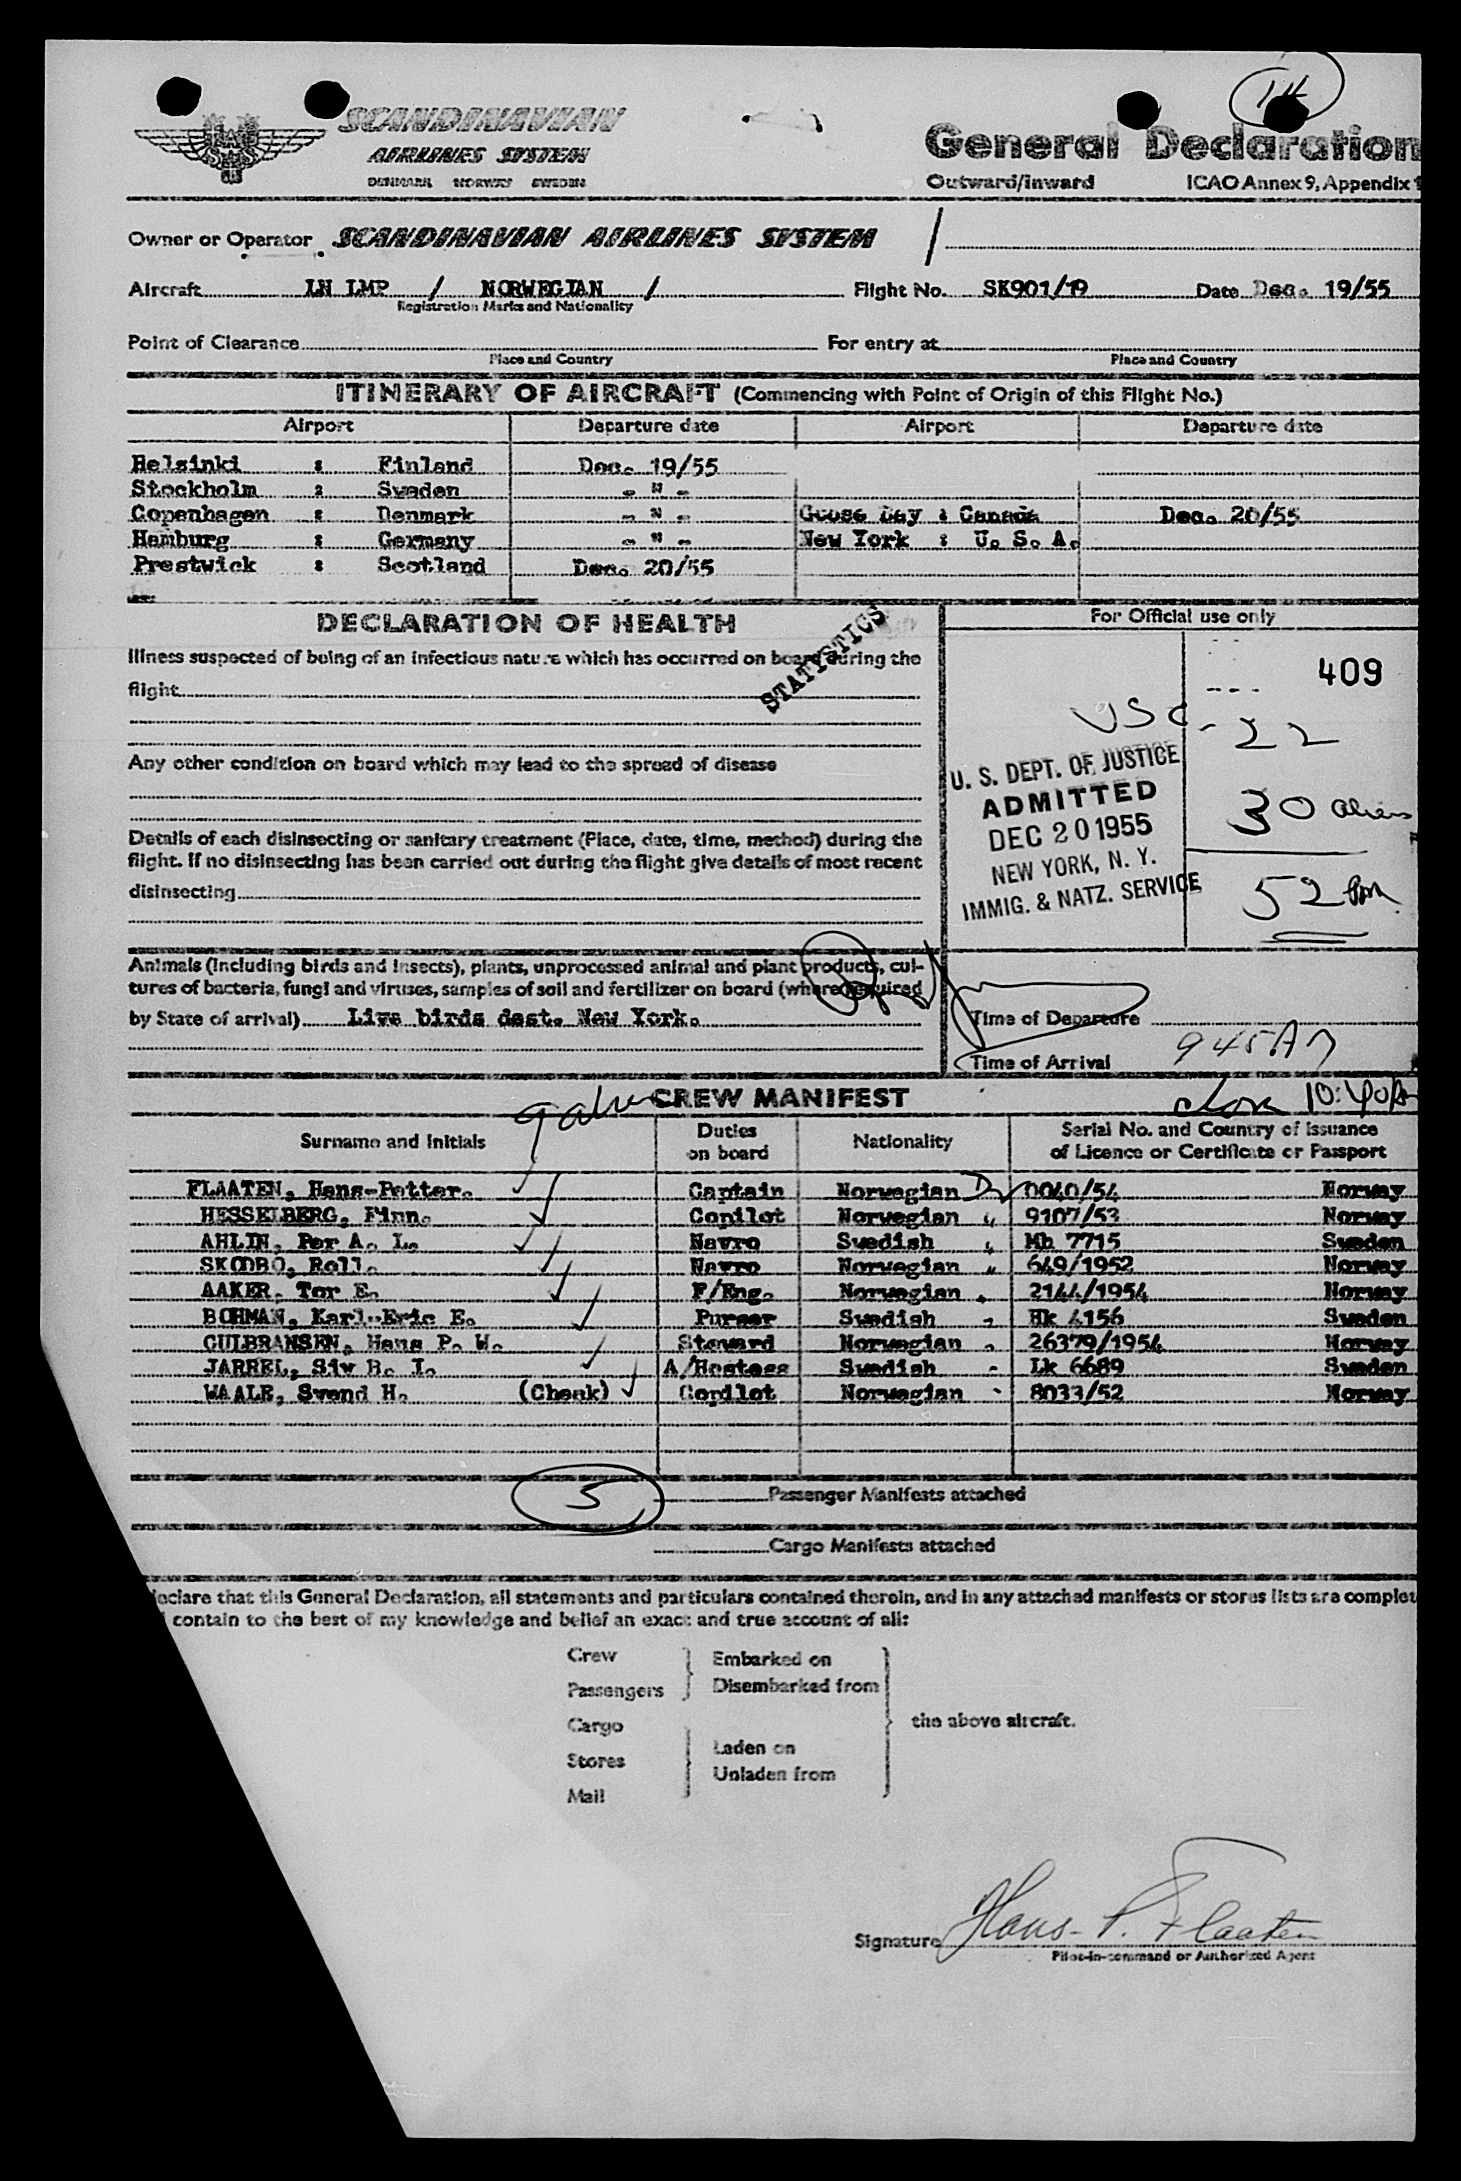 SCANDINAVIAN
AIRLINES SYSTEM
DENMARK NORWAY SWEDEN
General Declaration
Outward/Inward ICAO Annex 9, Appendix 1
Owner or Operator SCANDINAVIAN AIRLINES SYSTEM /
Aircraft LN LMP / NORWEGIAN / Flight No. SK901/19 Date Dec. 19/55
Registration Marks and Nationality
Point of Clearance For entry at
Place and Country Place and Country
ITINERARY OF AIRCRAFT (Commencing with Point of Origin of this Flight No.)
Airport Departure date Airport Departure date
Helsinki : Finland Dec. 19/55
Stockholm : Sweden - " -
Copenhagen : Denmark - " - Goose Bay : Canada Dec. 20/55
Hamburg : Germany - " - New York : U. S. A.
Prestwick : Scotland Dec. 20/55
DECLARATION OF HEALTH
STATISTICS
Illness suspected of being of an infectious nature which has occurred on board during the
flight
Any other condition on board which may lead to the spread of disease
Details of each disinsecting or sanitary treatment (Place, date, time, method) during the
flight. If no disinsecting has been carried out during the flight give details of most recent
disinsecting
Animals (including birds and insects), plants, unprocessed animal and plant products, cul-
tures of bacteria, fungi and viruses, samples of soil and fertilizer on board (where required
by State of arrival) Live birds dest. New York.
For Official use only
409
USC - 22
30 aliens
52
U. S. DEPT. OF JUSTICE
ADMITTED
DEC 20 1955
NEW YORK, N. Y.
IMMIG. & NATZ. SERVICE
Time of Departure
Time of Arrival 945A
10:40A
CREW MANIFEST
Surname and Initials Duties on board Nationality Serial No. and Country of Issuance of Licence or Certificate or Passport
FLAATEN, Hans-Petter. Captain Norwegian 0040/54 Norway
HESSELBERG, Finn. Copilot Norwegian " 9107/53 Norway
AHLIN, Per A. L. Navro Swedish " Mh 7715 Sweden
SKODBO, Rolf. Navro Norwegian " 649/1952 Norway
AAKER, Tor E. F/Eng. Norwegian 2144/1954 Norway
BOHMAN, Karl-Eric E. Purser Swedish Hk 4156 Sweden
GULBRANSEN, Hans P. W. Steward Norwegian 26379/1954 Norway
JARREL, Siw B. I. A/Hostess Swedish Lk 6689 Sweden
WAALE, Svend H. (Check) Copilot Norwegian 8033/52 Norway
5 Passenger Manifests attached
Cargo Manifests attached
declare that this General Declaration, all statements and particulars contained therein, and in any attached manifests or stores lists are complet
contain to the best of my knowledge and belief an exact and true account of all:
Crew Embarked on
Passengers Disembarked from
Cargo the above aircraft.
Laden on
Stores
Unladen from
Mail
Signature Hans-P. Flaaten
Pilot-in-command or Authorized Agent